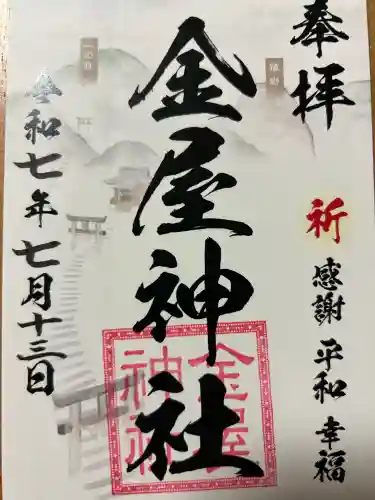 奉拝
祈 感謝 平和 幸福
金屋神社
金屋神社
令和七年七月十三日